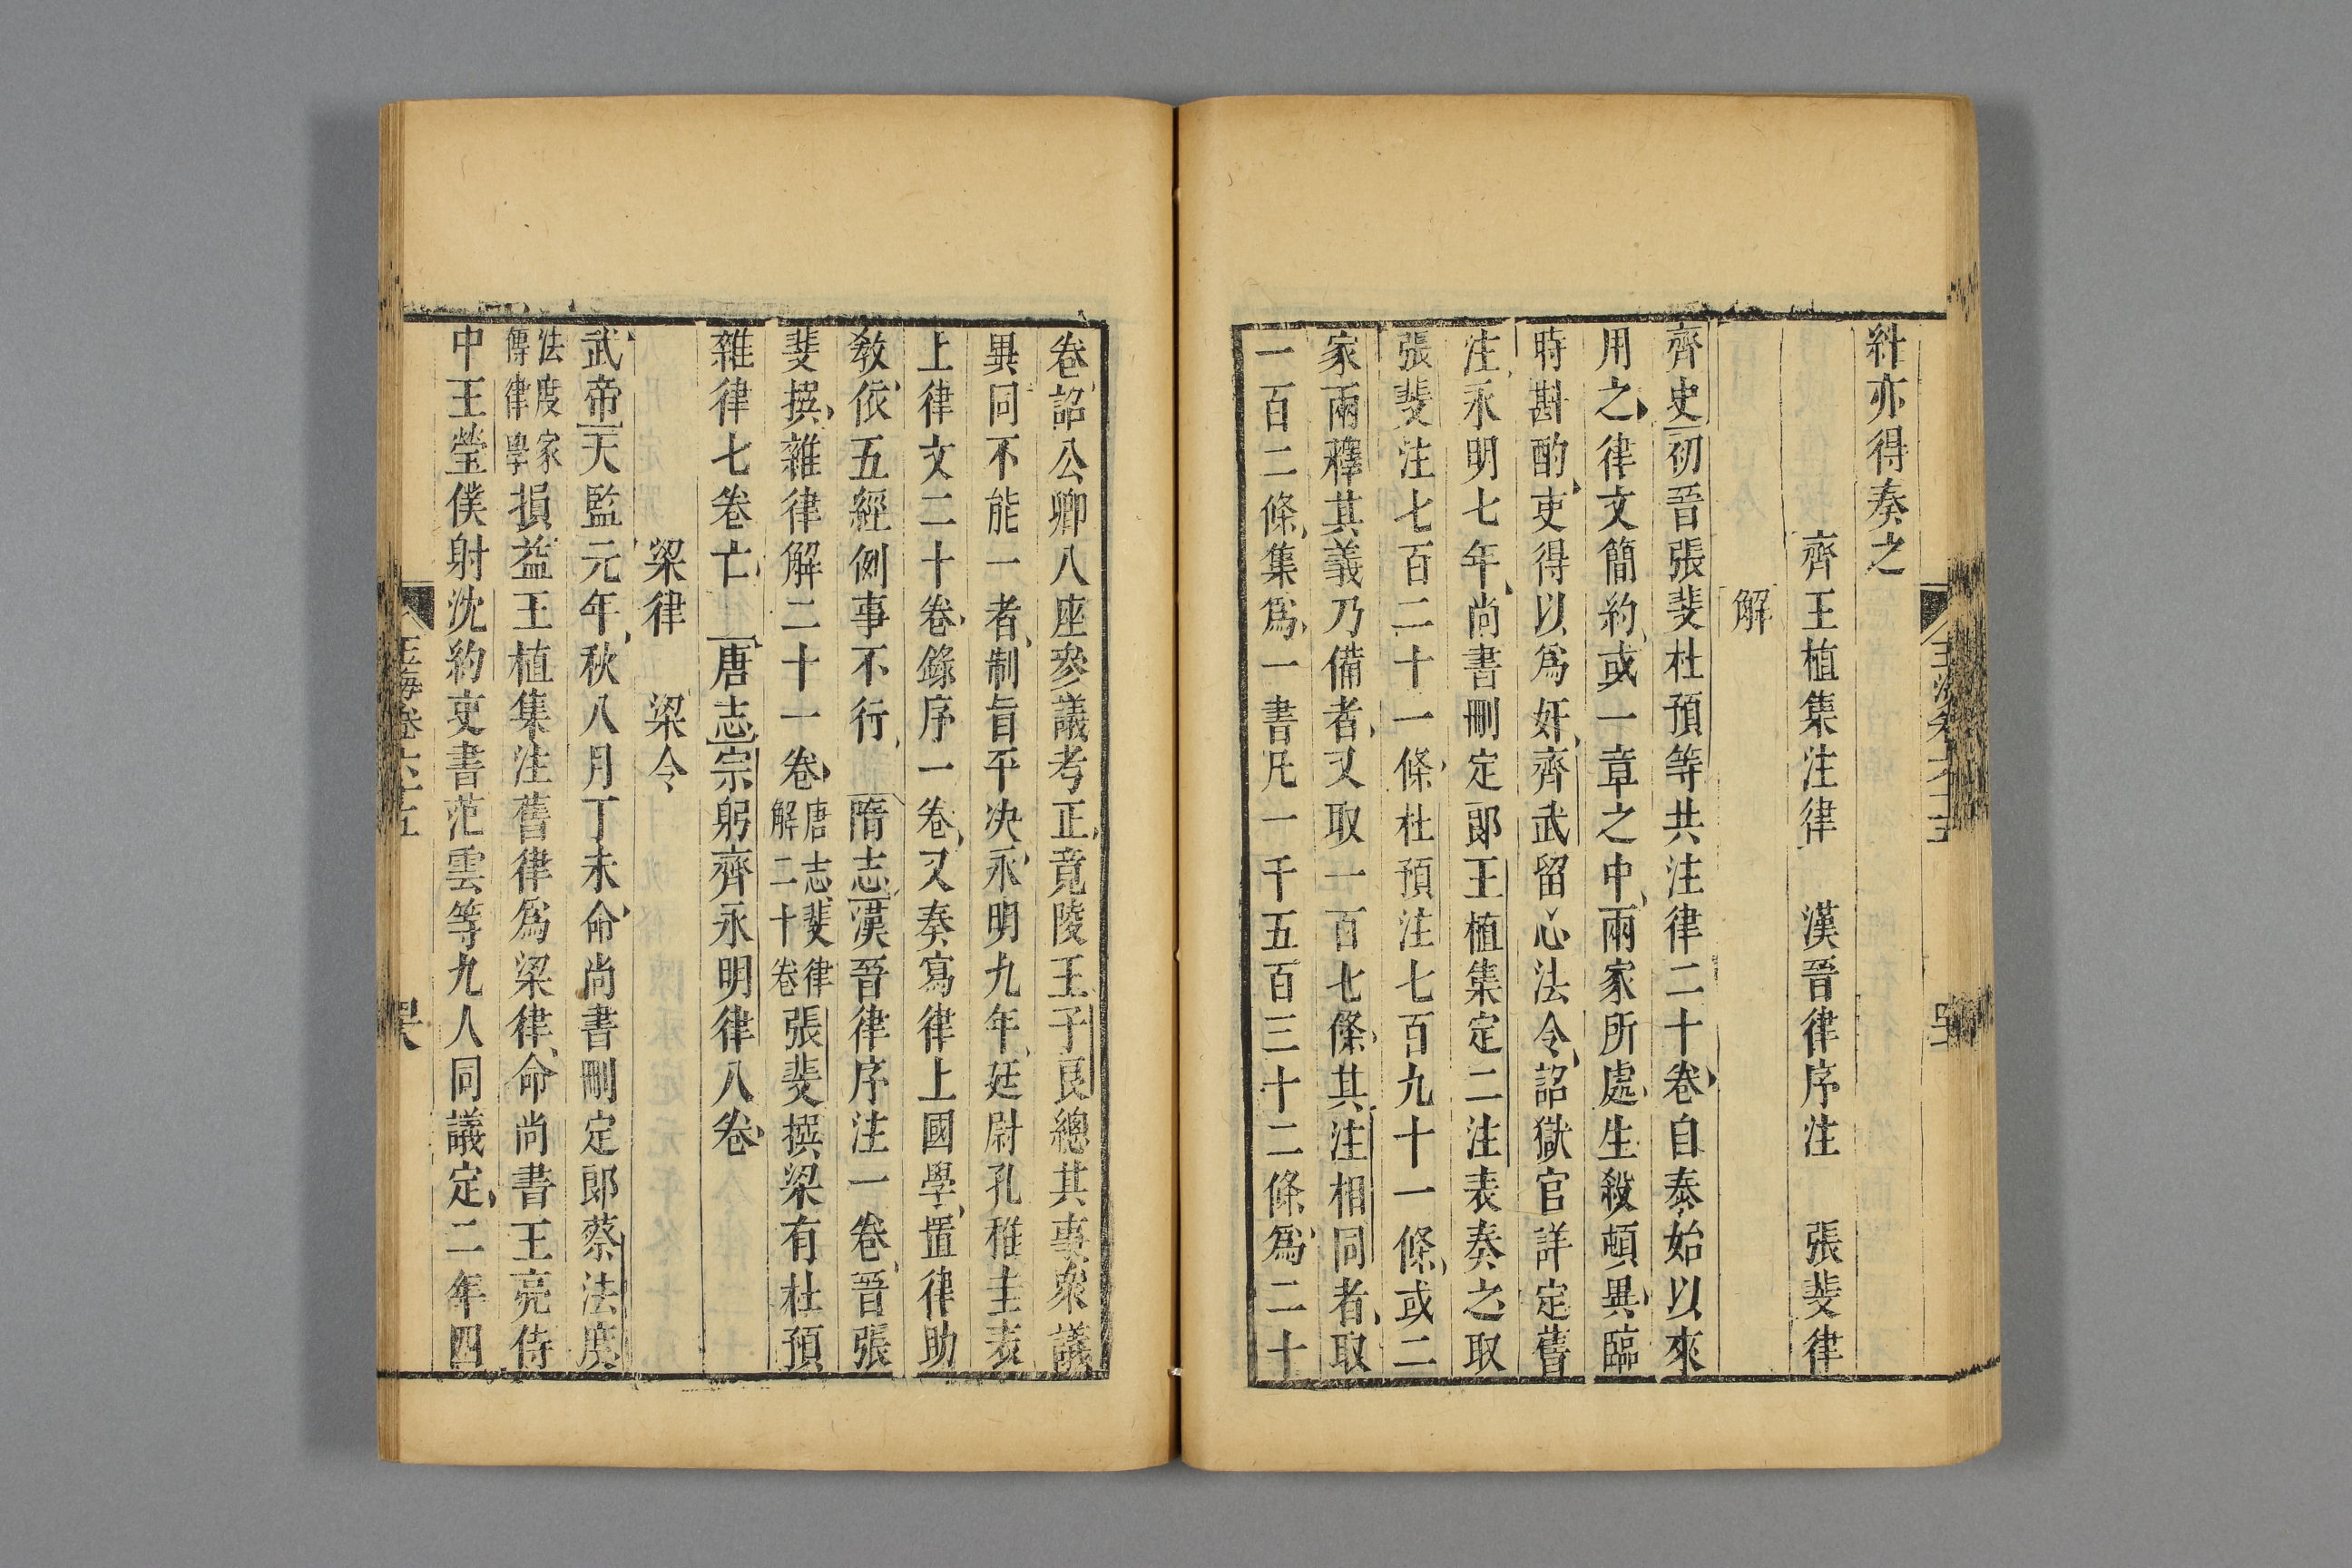 糾亦得奏之
齊王植集注律　漢晉律序注　張斐律
解
齊史初晉張斐杜預等共注律二十卷自泰始以來
用之律文簡約或一章之中兩家所處生殺頓異臨
時斟酌吏得以爲奸齊武留心法令詔獄官詳定舊
注永明七年尚書刪定郎王植集定二注表奏之取
張斐注七百二十一條杜預注七百九十一條或二
家兩釋其義乃備者又取一百七條其注相同者取
一百二條集爲一書凡一千五百三十二條爲二十
卷詔公卿八座參議考正竟陵王子良總其事衆議
異同不能一者制旨平决永明九年廷尉孔稚圭表
上律文二十卷錄序一卷又奏寫律上國學置律助
敎依五經例事不行　隋志漢晉律序注一卷晉張
斐撰雜律解二十一卷唐志斐律解二十卷張斐撰梁有杜預
雜律七卷亡　唐志宗躬齊永明律八卷
梁律　梁令
武帝天監元年秋八月丁未命尚書刪定郎蔡法度
法度家傳律學損益王植集注舊律爲梁律命尚書王亮侍
中王瑩僕射沈約吏書范雲等九人同議定二年四
玉海卷六十五